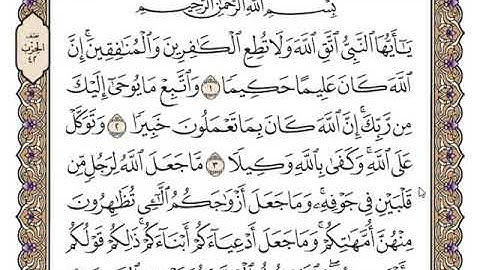 بِسْمِ ٱللَّهِ ٱلرَّحْمَٰنِ ٱلرَّحِيمِ
يَـٰٓأَيُّهَا ٱلنَّبِىُّ ٱتَّقِ ٱللَّهَ وَلَا تُطِعِ ٱلْكَـٰفِرِينَ وَٱلْمُنَـٰفِقِينَ ۗ إِنَّ
ٱللَّهَ كَانَ عَلِيمًا حَكِيمًا ١ وَٱتَّبِعْ مَا يُوحَىٰٓ إِلَيْكَ
مِن رَّبِّكَ ۚ إِنَّ ٱللَّهَ كَانَ بِمَا تَعْمَلُونَ خَبِيرًا ٢ وَتَوَكَّلْ
عَلَى ٱللَّهِ ۚ وَكَفَىٰ بِٱللَّهِ وَكِيلًا ٣ مَّا جَعَلَ ٱللَّهُ لِرَجُلٍ مِّن
قَلْبَيْنِ فِى جَوْفِهِۦ ۚ وَمَا جَعَلَ أَزْوَٰجَكُمُ ٱلَّـٰٓـِٔى تُظَـٰهِرُونَ
مِنْهُنَّ أُمَّهَـٰتِكُمْ ۚ وَمَا جَعَلَ أَدْعِيَآءَكُمْ أَبْنَآءَكُمْ ۚ ذَٰلِكُمْ قَوْلُكُم
نصف
الحزب
٤٢